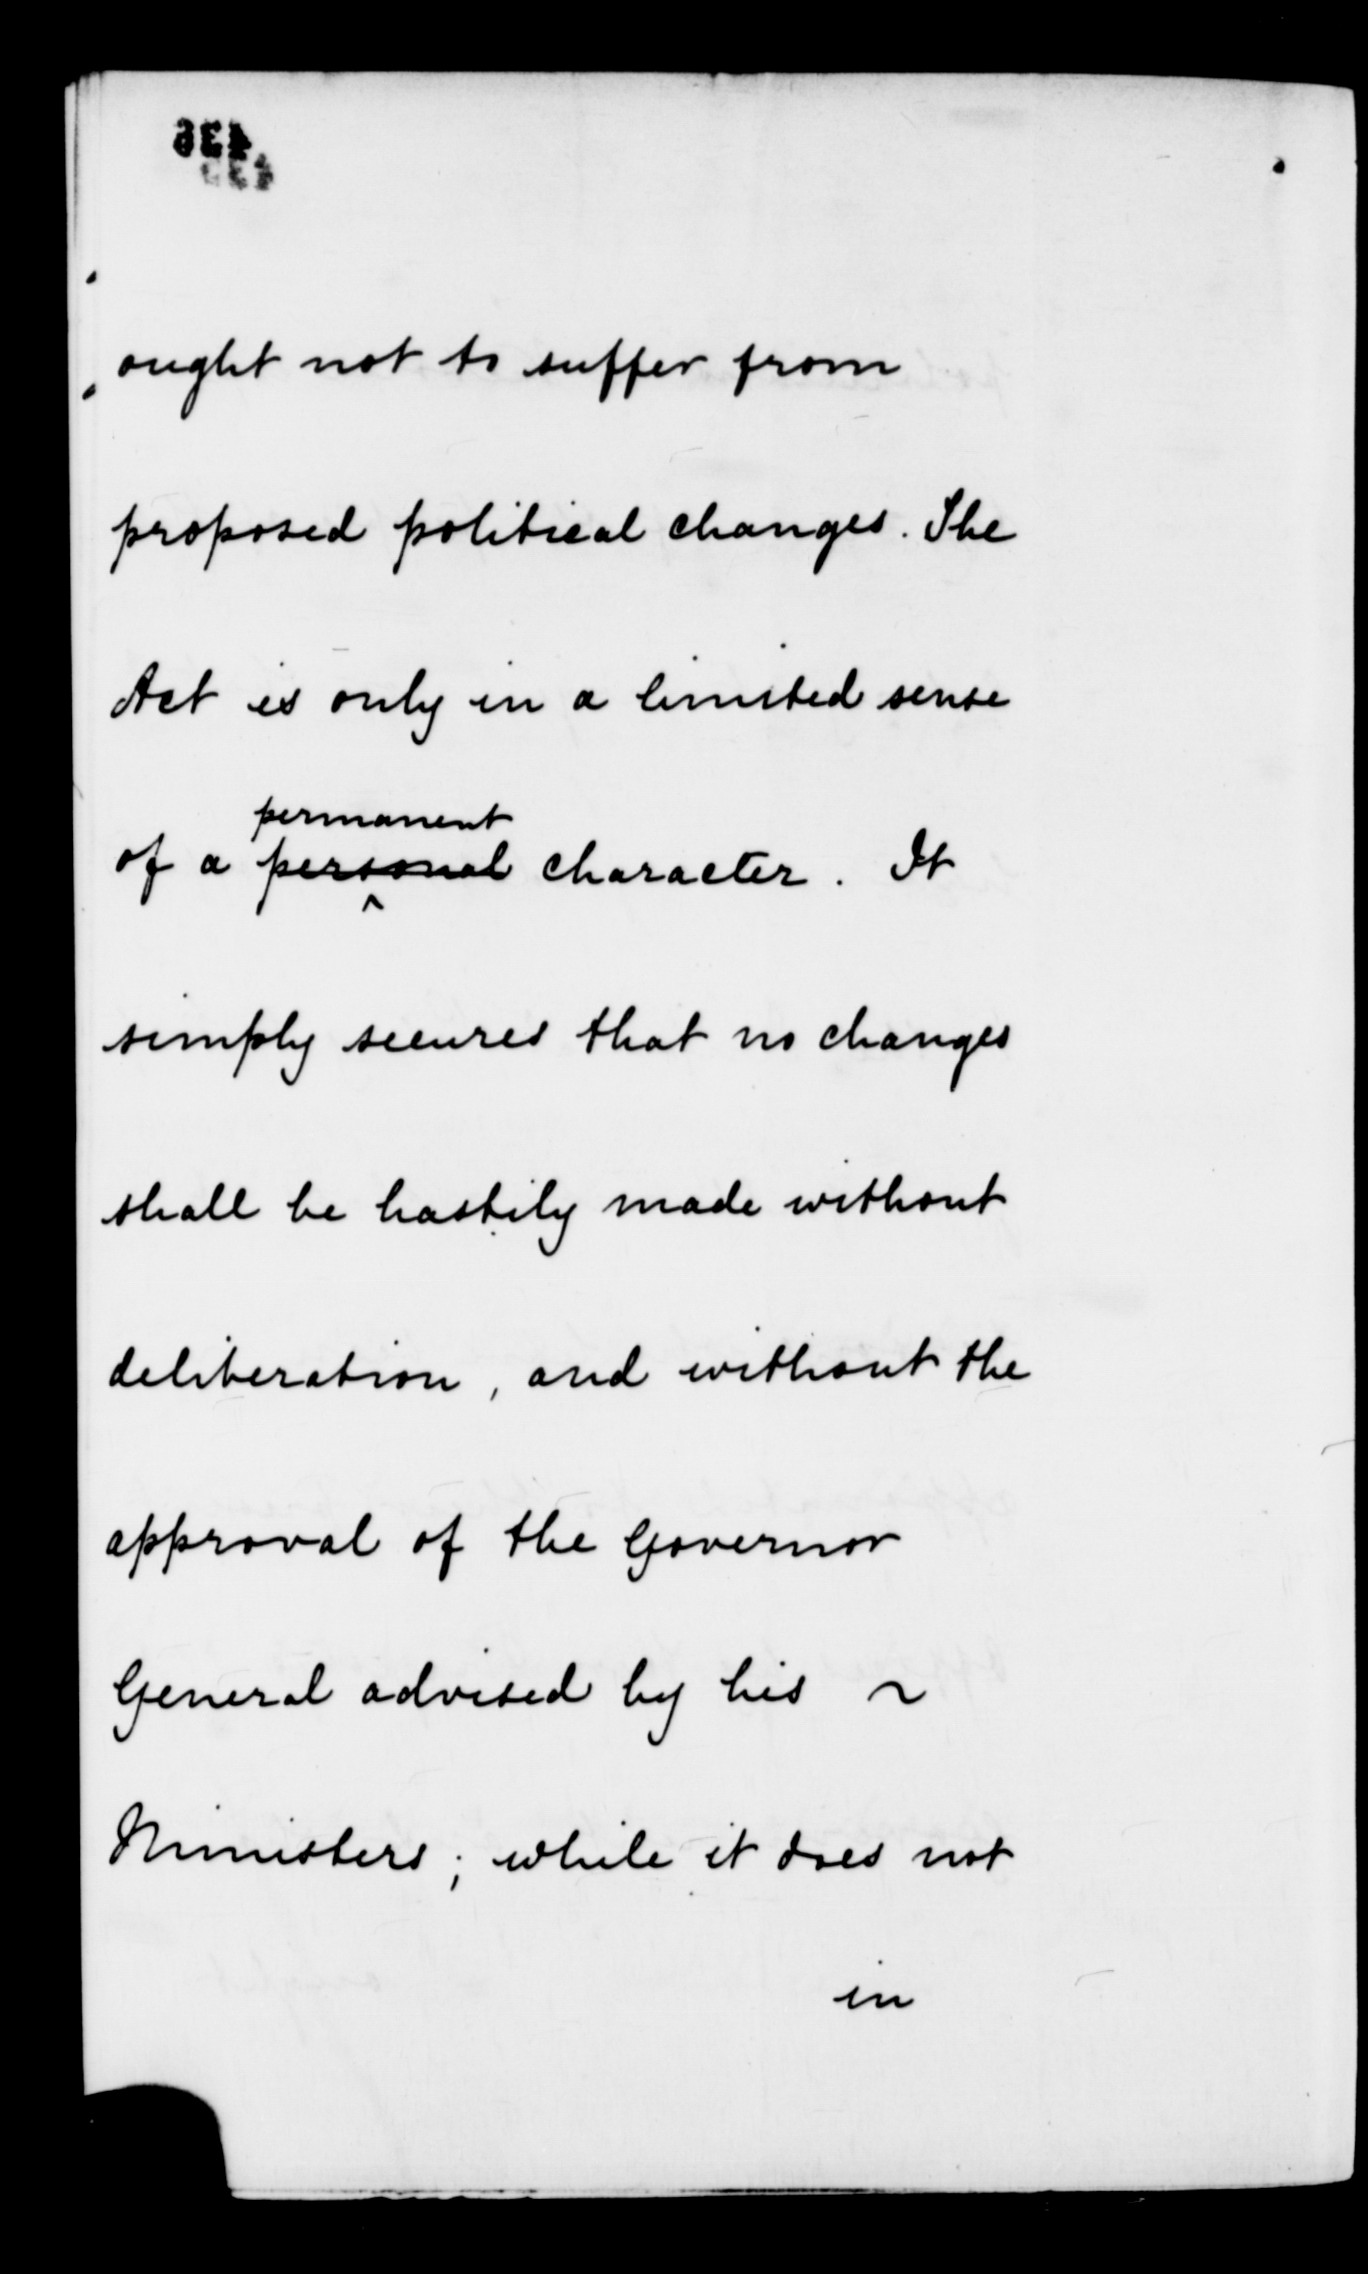 436
435
ought not to suffer from
proposed political changes. The
Act is only in a limited sense
permanent
of a personal character. It
simply secures that no changes
shall be hastily made without
deliberation, and without the
approval of the Governor
General advised by his ~
Ministers; while it does not
in